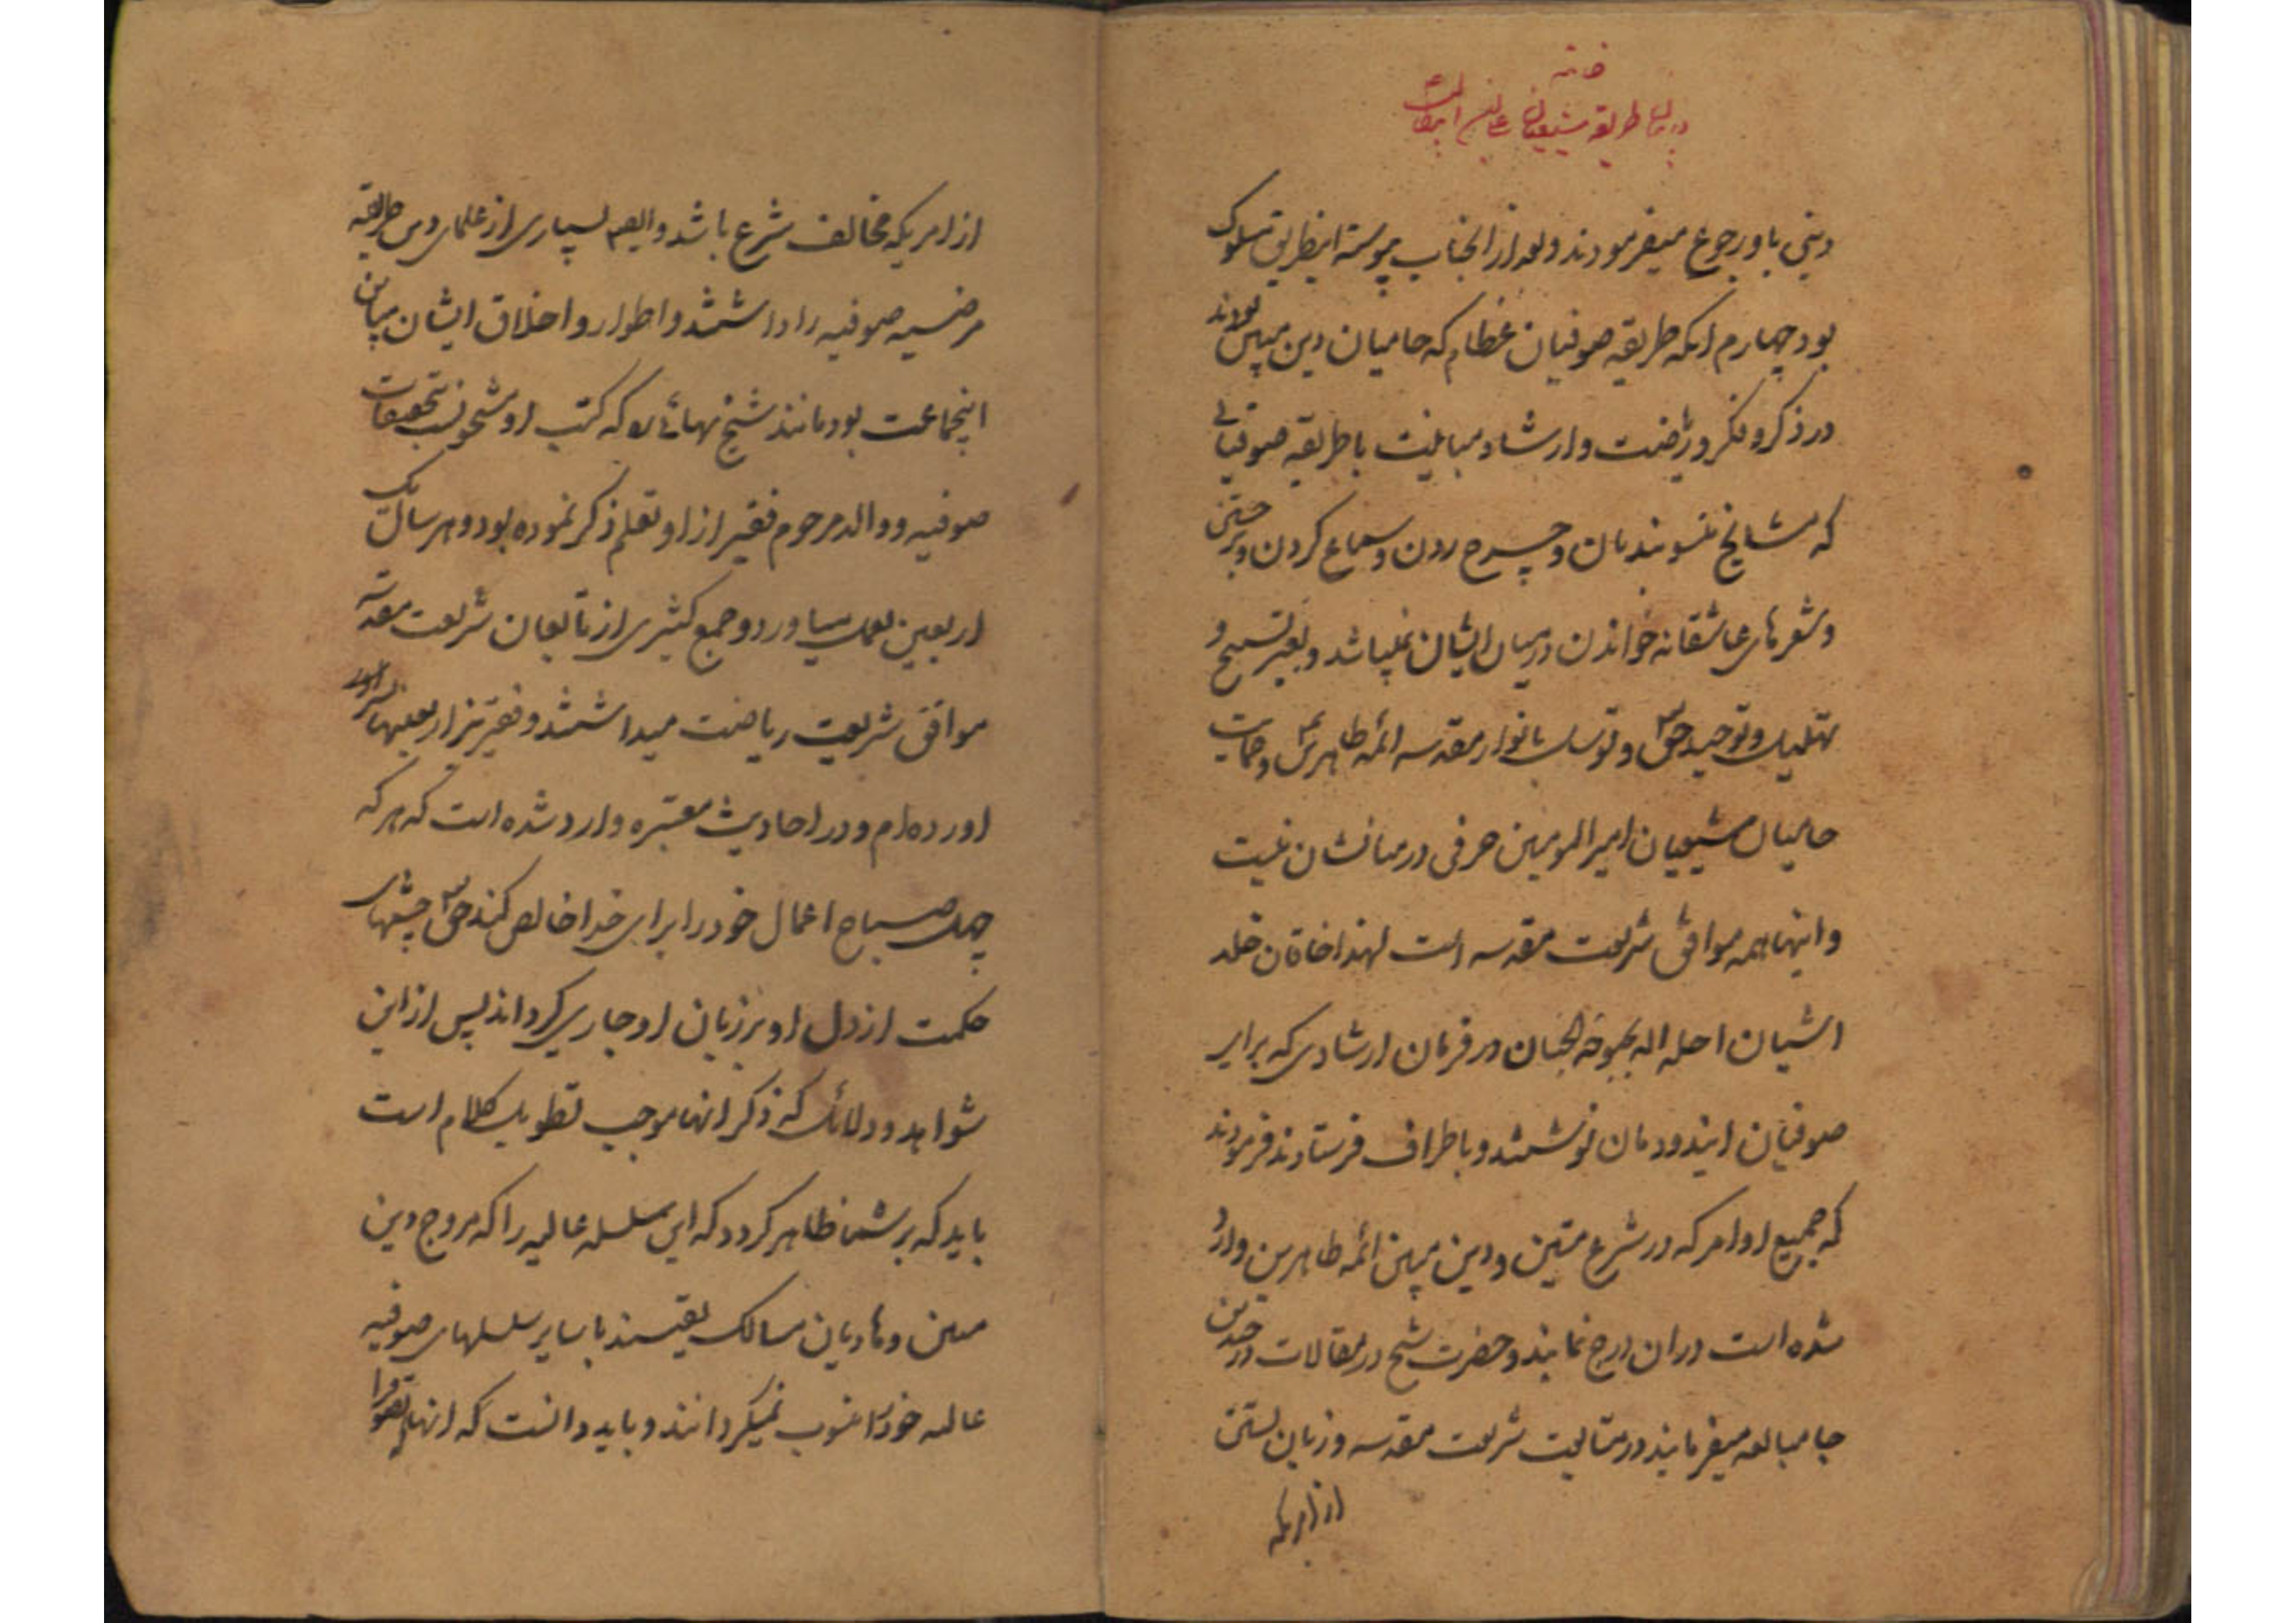 خاتمه
در بیان طریقه شیعیان
دینی باو رجوع میفرمودند و بعد از انجناب پیوسته اینطریق مسلوک
بود چهارم انکه طریقه صوفیان عظام که حامیان دین مبین بودند
در ذکر و فکر و ریاضت و ارشاد مباینت با طریقه صوفیانی
که بمشایخ منسوبند مان و چرخ زدن و سماع کردن و برجستن
و شعرهای عاشقانه خواندن در میان ایشان نمیباشد و بغیر تسبیح و
تهلیل و توحید حق و توسل بانوار مقدسه ائمه طاهرین و حمایت
حامیان شیعیان امیرالمومنین حرفی در میانشان نیست
و اینها همه موافق شریعت مقدسه است لهذا خاقان خلد
اشیان احله اله بحبوحه الجنان در فرمان ارشادی که برای
صوفیان ایندودمان نوشتند و باطراف فرستادند فرمودند
که جمیع اوامر که در شرع متین و دین مبین ائمه طاهرین وارد
شده است در ان درج نمایند و حضرت شیخ در مقالات در چندین
جا مبالغه میفرمایند در متابعت شریعت مقدسه و زبان بستن
از امریکه
از امریکه مخالف شرع باشد و ایضا بسیاری از علمای دین طریقه
مرضیه صوفیه را داشتند و اطوار و اخلاق ایشان مباین
اینجماعت بود مانند شیخ بهائی ره که کتب او مشحونست بتحقیقات
صوفیه و والد مرحوم فقیر از او تعلم ذکر نموده بود و هر سال یک
اربعین بعمل میاورد و جمع کثیری از تابعان شریعت مقدسه
موافق شریعت ریاضت میداشتند و فقیر نیز اربعینها بسر
اورده ام و در احادیث معتبره وارد شده است که هر که
چهل صباح اعمال خود را برای خدا خالص کند حق چشمهای
حکمت از دل او بر زبان او جاری گرداند پس از این
شواهد و دلائل که ذکر انها موجب تطویل کلام است
باید که بر شما ظاهر گردد که این سلسله عالیه را که مروج دین
مبین و هادیان مسالک یقیند با سایر سلسلهای صوفیه
عالیه خود را منسوب نمیگردانند و باید دانست که انها